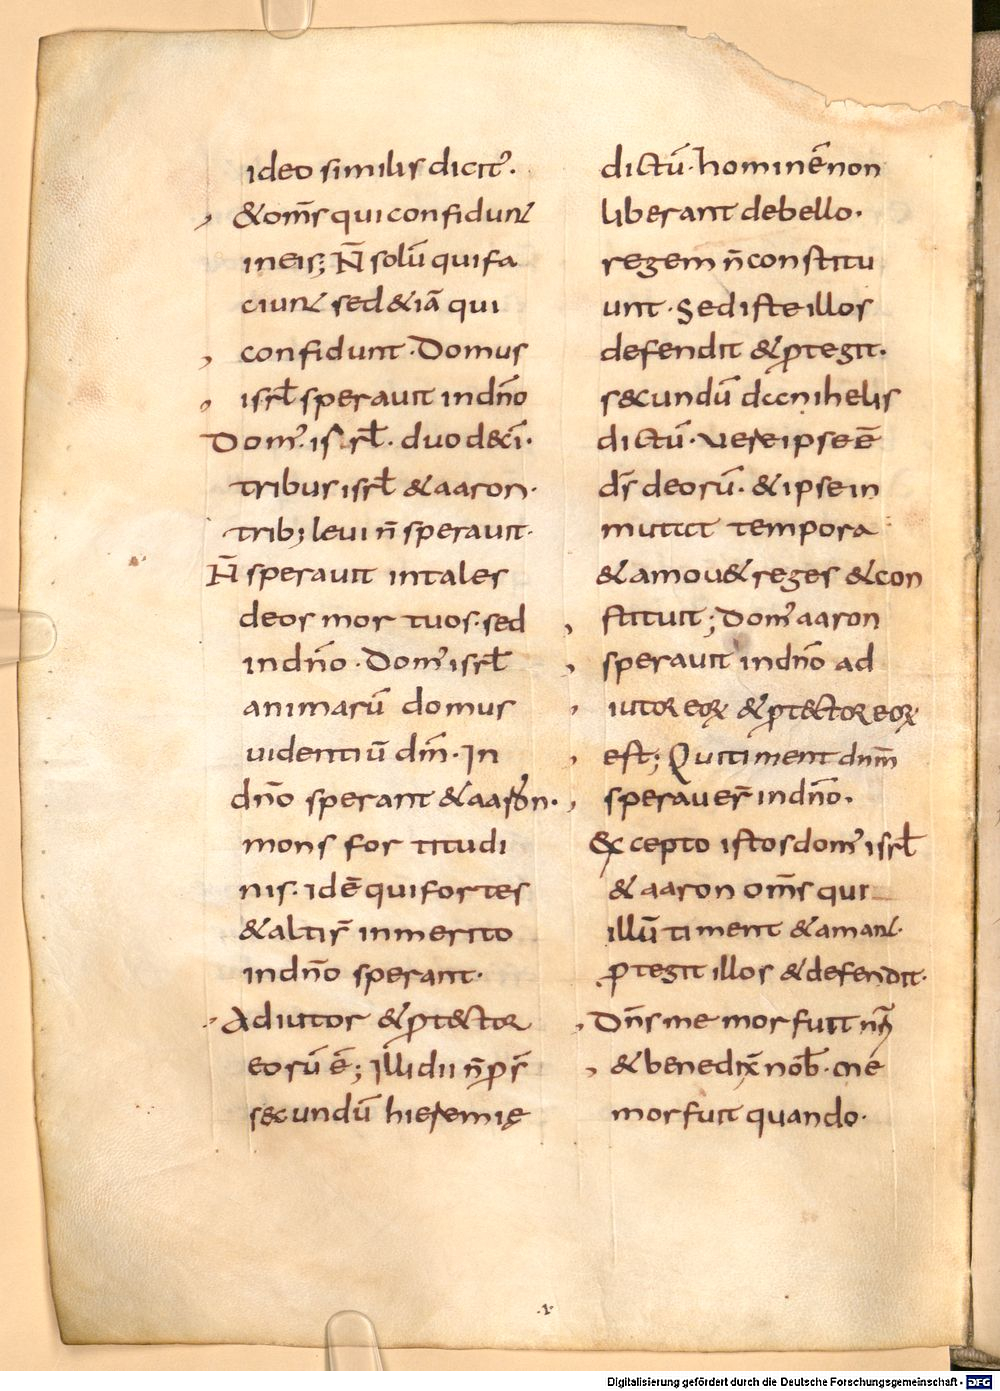 ideo similis dicit᷑.
&om̄s qui confidunt
in eis; N̄ solū qui fa
ciunt sed &iā qui
confidunt. Domus
isrł sperauit indn̄o
Dom᷑. isrł. duodeci̅.
tribus isrł & aaron.
trib; leui n̄ sperauit.
N̄ sperauit in tales
deos mortuos. sed
indn̄o. Dom᷑ isrł
animarū domus
uidentiū dm̄. In
dn̄o sperant & aaron.
mons fortitudi
nis. idē qui fortes
& altis̄ in merito
indn̄o sperant.
Adiutor & ꝓt&tor
eorū ē; Illi dii n̄
s&cundū hieremię
dictū. hominē non
liberant debello.
regem n̄ constitu
unt. Sed iste illos
defendit & ꝓtegit.
s&cundū danihelis
dictū. uere ipse ē
ds̄ deorū. & ipse in
mutat tempora
& amou& reges & con
stituit; Dom᷑ aaron
sperauit indn̄o ad
iutor eoꝝ & ꝓt&tor eoꝝ
est; Qui timent dnm̄
sperauer̄ indn̄o.
Excepto istos dom᷑ isrł
& aaron om̄s qui
illū timent & amant.
ꝓtegit illos & defendit.
Dn̄s memor fuit nr̄i
& benedix̄ nob̄. me
mor fuit quando.
.v.
Digitalisierung gefördert durch die Deutsche Forschungsgemeinschaft - DFG